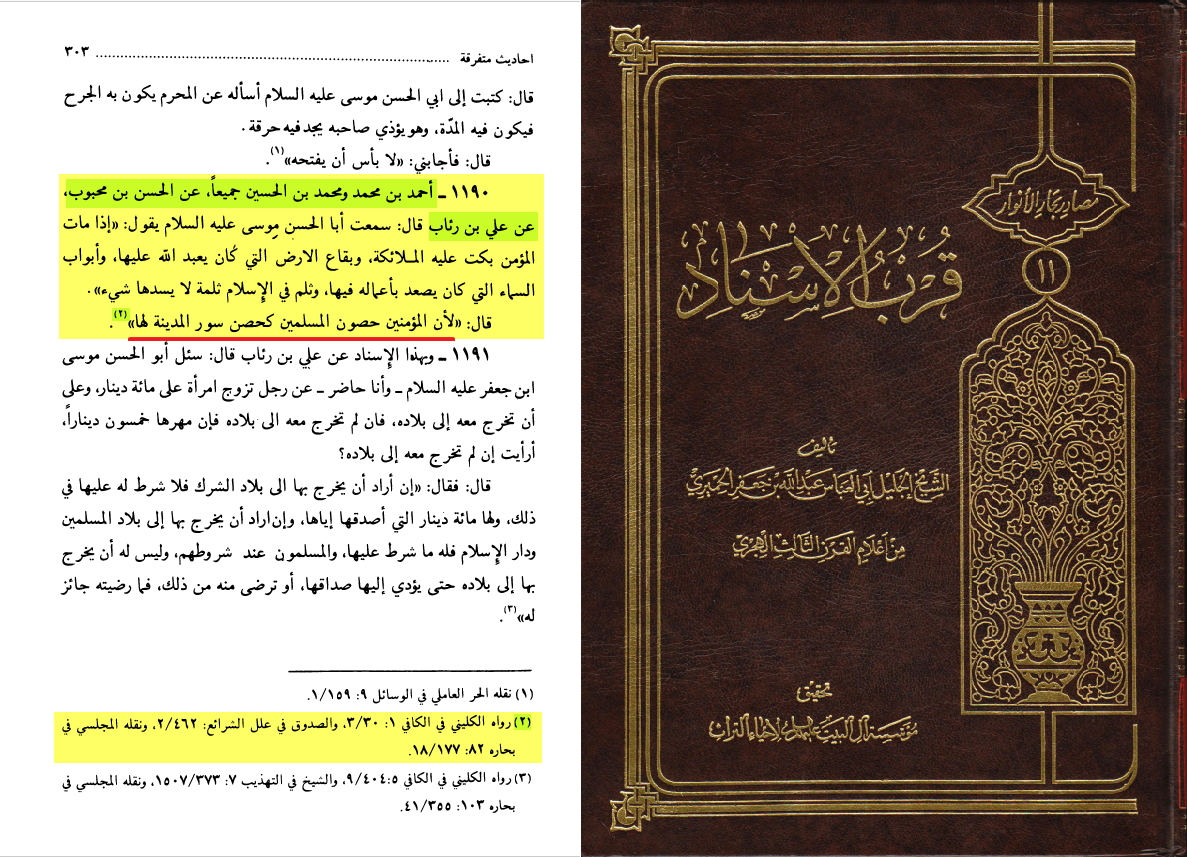 احاديث متفرقة ........................................ ٣٠٣
قال: كتبت إلى ابي الحسن موسى عليه السلام أسأله عن المحرم يكون به الجرح
فيكون فيه المدّة، وهو يؤذي صاحبه يجد فيه حرقة.
قال: فأجابني: «لا بأس أن يفتحه»(١).
١١٩٠ ـ أحمد بن محمد ومحمد بن الحسين جميعاً، عن الحسن بن محبوب،
عن علي بن رئاب قال: سمعت أبا الحسن موسى عليه السلام يقول: «إذا مات
المؤمن بكت عليه الملائكة، وبقاع الارض التي كان يعبد الله عليها، وأبواب
السماء التي كان يصعد بأعماله فيها، وثلم في الإسلام ثلمة لا يسدها شيء».
قال: «لأن المؤمنين حصون المسلمين كحصن سور المدينة لها»(٢).
١١٩١ ـ وبهذا الإسناد عن علي بن رئاب قال: سئل أبو الحسن موسى
ابن جعفر عليه السلام ـ وأنا حاضر ـ عن رجل تزوج امرأة على مائة دينار، وعلى
أن تخرج معه إلى بلاده، فان لم تخرج معه الى بلاده فإن مهرها خمسون ديناراً،
أرأيت إن لم تخرج معه إلى بلاده؟
قال: فقال: «إن أراد أن يخرج بها الى بلاد الشرك فلا شرط له عليها في
ذلك، ولها مائة دينار التي أصدقها إياها، وإن اراد أن يخرج بها إلى بلاد المسلمين
ودار الإسلام فله ما شرط عليها، والمسلمون عند شروطهم، وليس له أن يخرج
بها إلى بلاده حتى يؤدي إليها صداقها، أو ترضى منه من ذلك، فما رضيته جائز
له»(٣).
(١) نقله الحر العاملي في الوسائل ٩: ١/١٥٩.
(٢) رواه الكليني في الكافي ١: ٣/٣٠، والصدوق في علل الشرائع: ٢/٤٦٢، ونقله المجلسي في
بحاره ٨٢: ١٨/١٧٧.
(٣) رواه الكليني في الكافي ٥: ٩/٤٠٤، والشيخ في التهذيب ٧: ١٥٠٧/٣٧٣، ونقله المجلسي في
بحاره ١٠٣: ٤١/٣٥٥.
مصادر بحار الأنوار
١١
قرب الإسناد
تأليف
الشيخ الجليل أبي العباس عبد الله بن جعفر الحميري
من أعلام القرن الثالث الهجري
تحقيق
مؤسسة آل البيت عليهم السلام لإحياء التراث